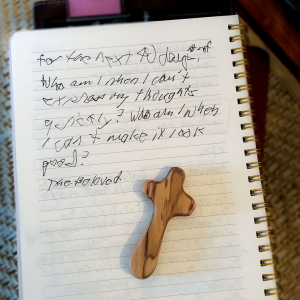 for the next 40 days,
Who am I when I can't
express my thoughts
quickly? Who am I when
I can't make it look
good?
The Beloved